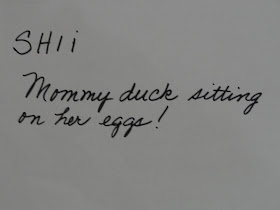 SHIi
Mommy duck sitting
on her eggs!